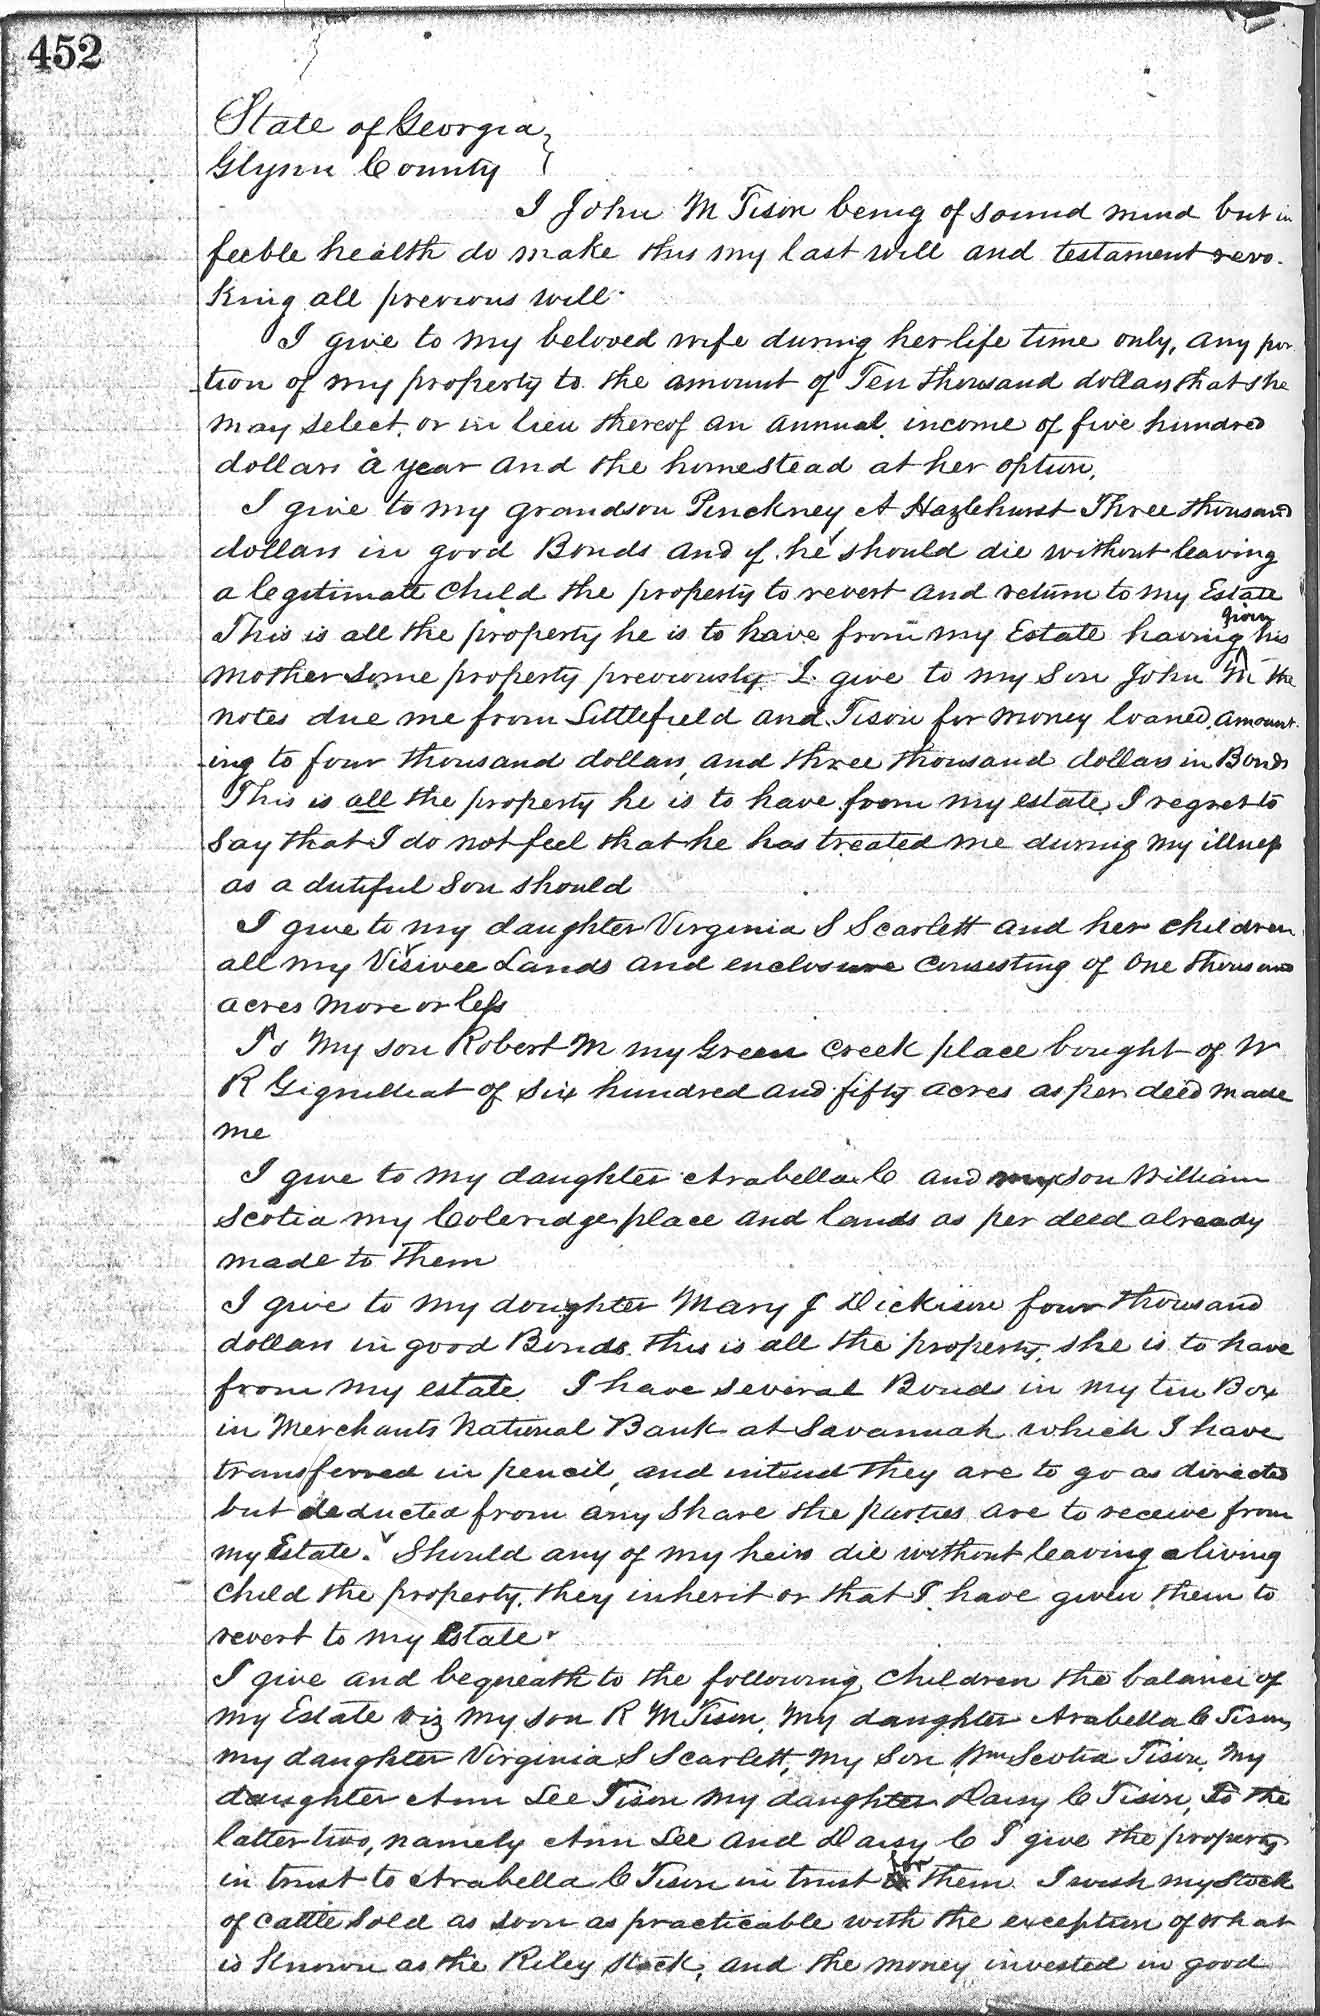 452
State of Georgia
Glynn County
I John M Tison being of sound mind but in
feeble health do make this my last will and testament revo-
king all previous will.
I give to my beloved wife during her life time only, any por
tion of my property to the amount of Ten thousand dollars that she
may select, or in lieu thereof an annual income of five hundred
dollars a year and the homestead at her option.
I give to my grandson Pinckney A Hazlehurst Three thousand
dollars in good Bonds and if he should die without leaving
a legitimate child the property to revert and return to my Estate
This is all the property he is to have from my Estate having given his
mother some property previously I give to my Son John M the
notes due me from Littlefield and Tison for money loaned, amount-
ing to four thousand dollars, and three thousand dollars in Bonds
This is all the property he is to have from my estate, I regret to
say that I do not feel that he has treated me during my illness
as a dutiful son should
I give to my daughter Virginia S Scarlett and her children
all my Lands and enclosure consesting of One thousand
acres more or less
To My son Robert M my Green Creek place bought of W
R Gignilliat of Six hundred and fifty acres as per deed made
me
I give to my daughter Arabella C and my son William
Scotia my Coleridge place and lands as per deed already
made to them
I give to my doughter Mary J Dickison four thousand
dollars in good Bonds. this is all the property, she is to have
from my estate I have several Bonds in my tin Box
in Merchants National Bank at Savannah which I have
transferred in pencil, and intend they are to go as directed
but deducted from any share the parties are to receive from
my Estate. Should any of my heirs die without leaving a living
Child the property, they inherit or that I have given them to
revert to my Estate.
I give and bequeath to the following children the balance of
my Estate viz my son R M Tison, My daughter Arabella C Tison,
my daughter Virginia S Scarlett, My Son Wm Scotia Tison, My
daughter Ann Lee Tison my daughter Daisy C Tison, To the
latter two, namely Ann Lee and Daisy C I give the property
in trust to Arabella C Tison in trust for them I wish my Stock
of cattle Sold as soon as practicable with the exception of what
is known as the Riley Stock, and the money invested in good